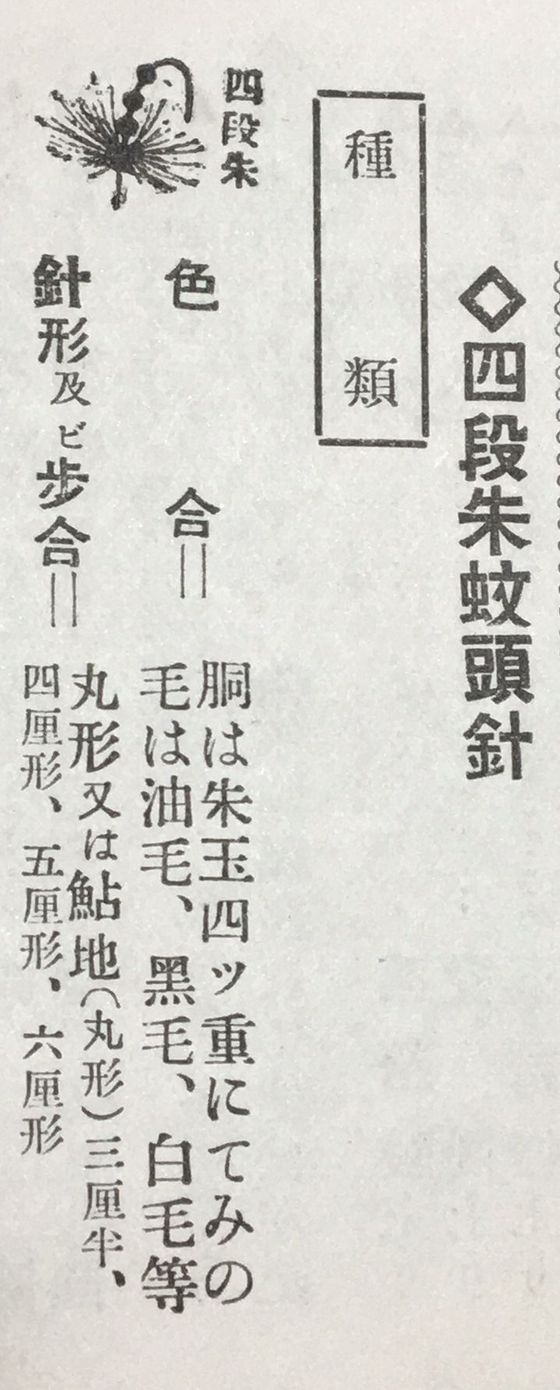 ◇四段朱蚊頭針
種類
四段朱
色合＝
胴は朱玉四ッ重にてみの
毛は油毛、黑毛、白毛等
針形及ビ步合＝
丸形又は鮎地（丸形）三厘半、
四厘形、五厘形、六厘形